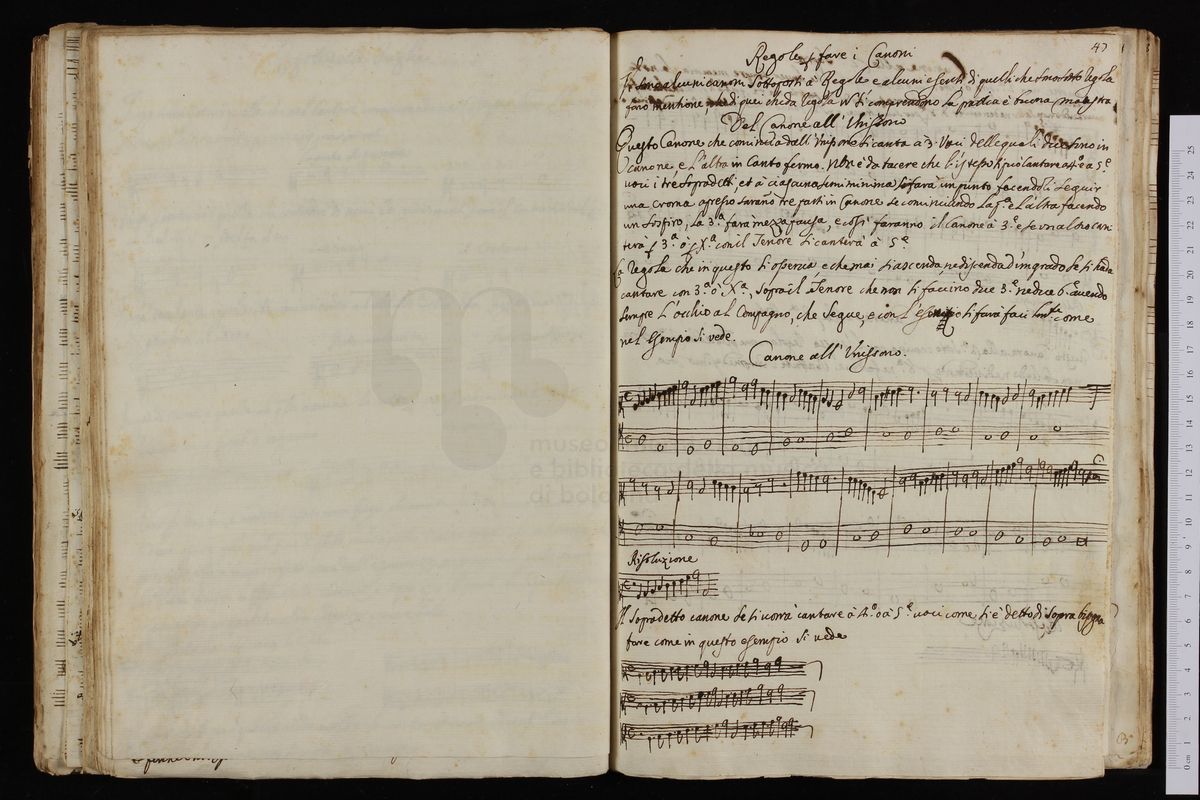 47
Regole p fare i Canoni
alcuni canoni sottoposti à Regole e alcuni esenti di quelli che
fano mentione, che di quei che da la pratica è buona maestra
Del Canone all' Unissono
Questo Canone che comincia dall' Unisono si canta à 3. Voci delle quali dice sino in
Canone, e l'altra in Canto fermo. Non è da tacere che l'istesso si può cantare a 4.º e a 5.º
voci i tre sopradetti, et à ciascuna semiminima si farà un punto facendoli seguir
una croma apresso sarano tre parti in Canone se cominciando la p.ª e l'altra facendo
un sospiro, la 3.ª farà mezza pausa, e così faranno il Canone à 3.º e se una altro can
terà p 3.ª ò p X.ª con il Tenore si canterà à 5.º
La Regola che in questo si osserva è che mai si ascenda ne discenda di grado se si hada
cantare con 3.ª ò X.ª, sopra il Tenore che non si faccino due 3.º ne due 6.º avendo
sempre l occhio al Compagno, che segue, e con l' esempio si farà facilmte come
nel Esempio si vede.
Canone all' Unissono.
museo
e biblioteca della musica
di bologna
Risoluzione
Il sopradetto canone se si vorrà cantare à 4.º o à 5.º voci come si è detto di sopra bisogna
fare come in questo esempio si vede
0 cm 1 2 3 4 5 6 7 8 9 10 11 12 13 14 15 16 17 18 19 20 21 22 23 24 25